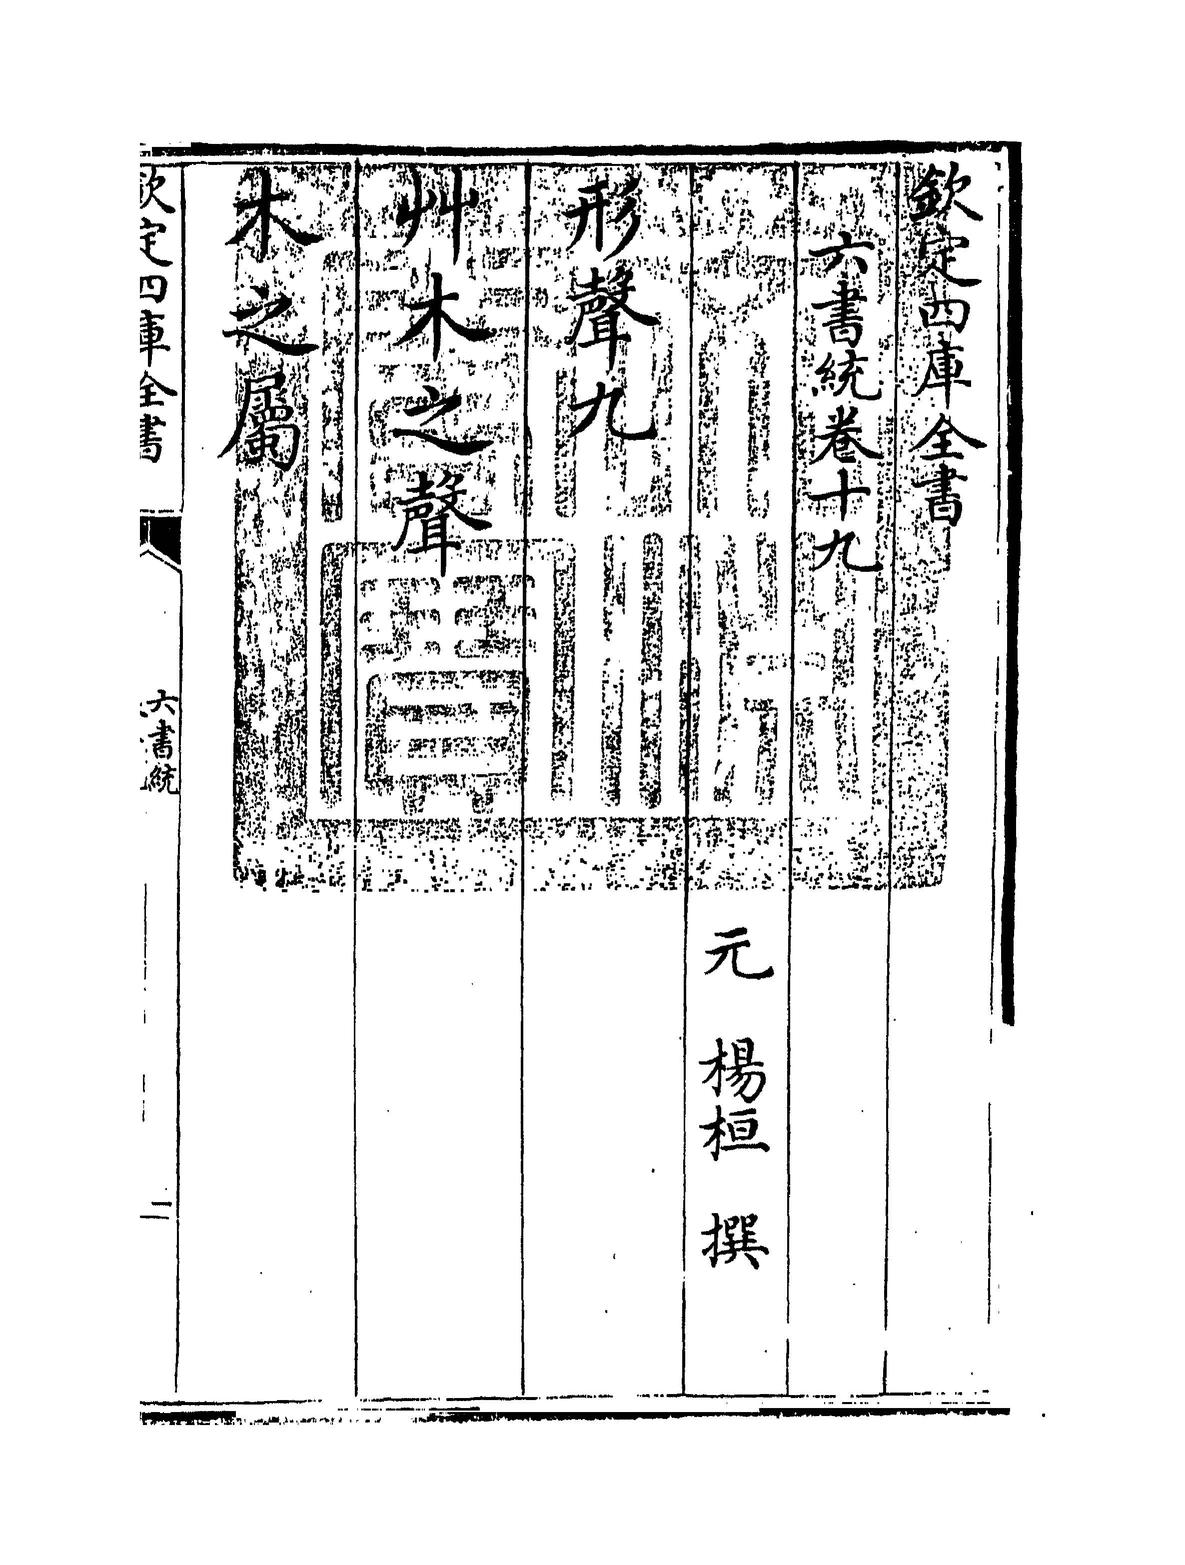 欽定四庫全書
六書統卷十九
元 楊桓 撰
形聲九
艸木之聲
木之屬
欽定四庫全書
六書統